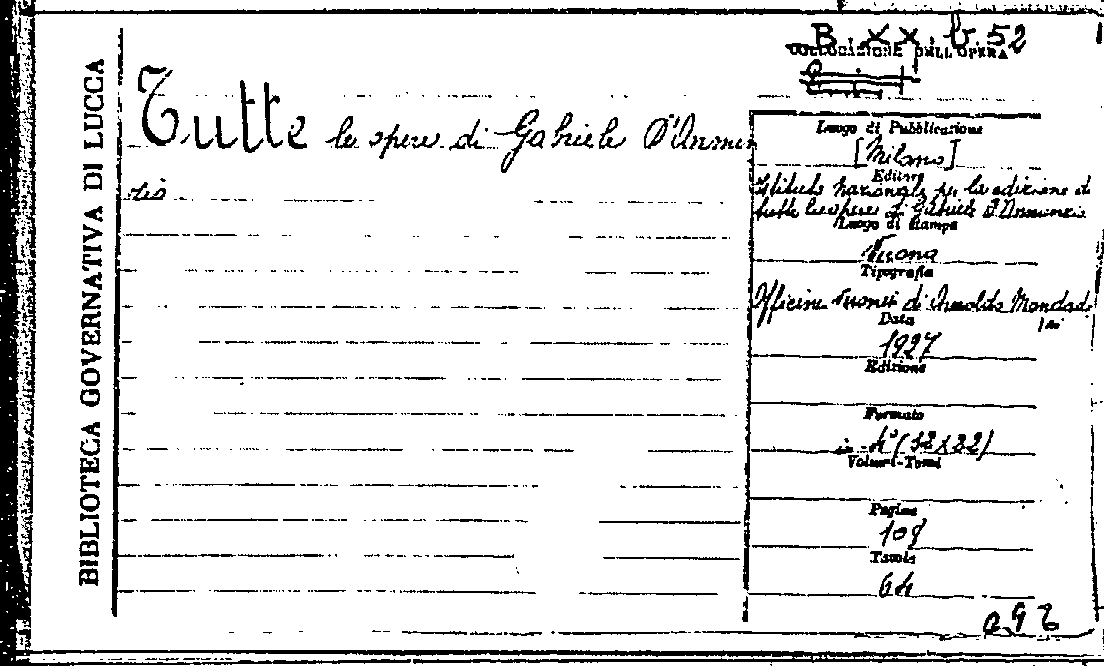 BIBLIOTECA GOVERNATIVA DI LUCCA
B. XX. b. 52
COLLOCAZIONE DELL'OPERA
Tutte le opere di Gabriele D'Annun
zio
Luogo di Pubblicazione
[Milano]
Editore
Istituto Nazionale per la edizione di
tutte le opere di Gabriele D'Annunzio
Luogo di Stampa
Verona
Tipografia
Officine Veronesi di Arnoldo Mondado
ri
Data
1927
Edizione
Formato
in -4° (32x22)
Volumi-Tomi
Pagine
109
Tavole